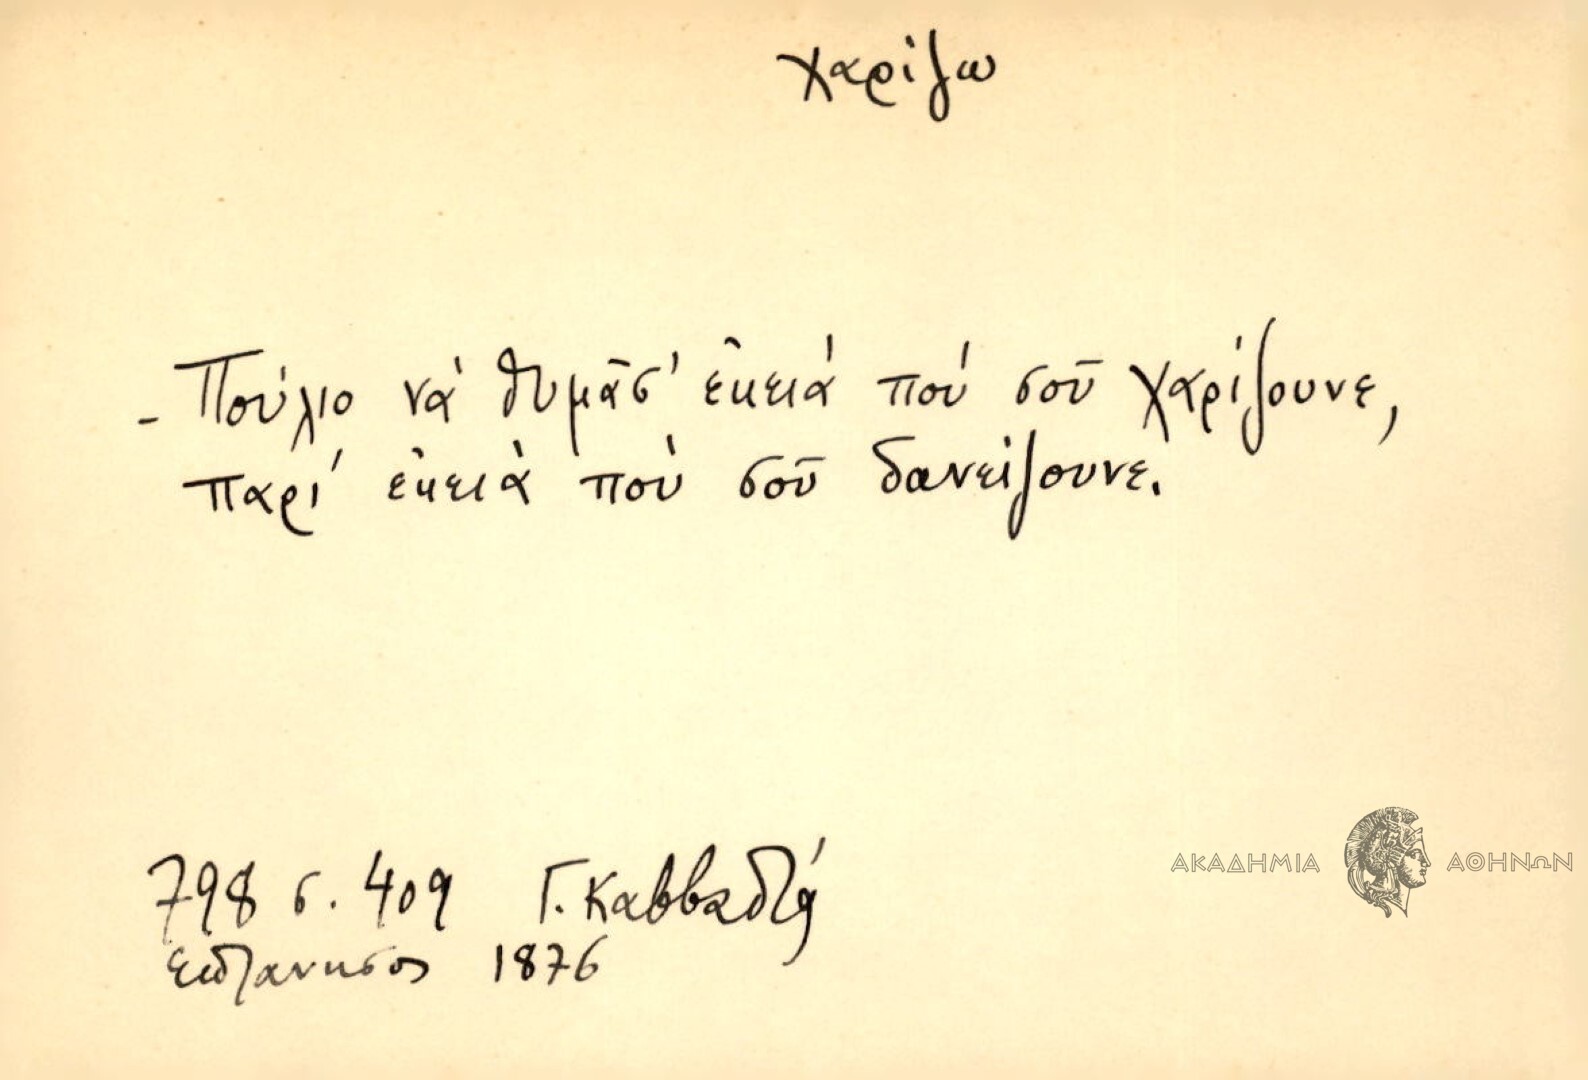 χαρίζω
- Πούλιο νά θυμᾶσ' ἐκειά πού σοῦ χαρίζουνε,
παρί ἐκειὰ πού σοῦ δανείζουνε.
798 σ. 409 Γ. Καββαδία
Ἑπτανησος 1876
ΑΚΑΔΗΜΙΑ ΑΘΗΝΩΝ